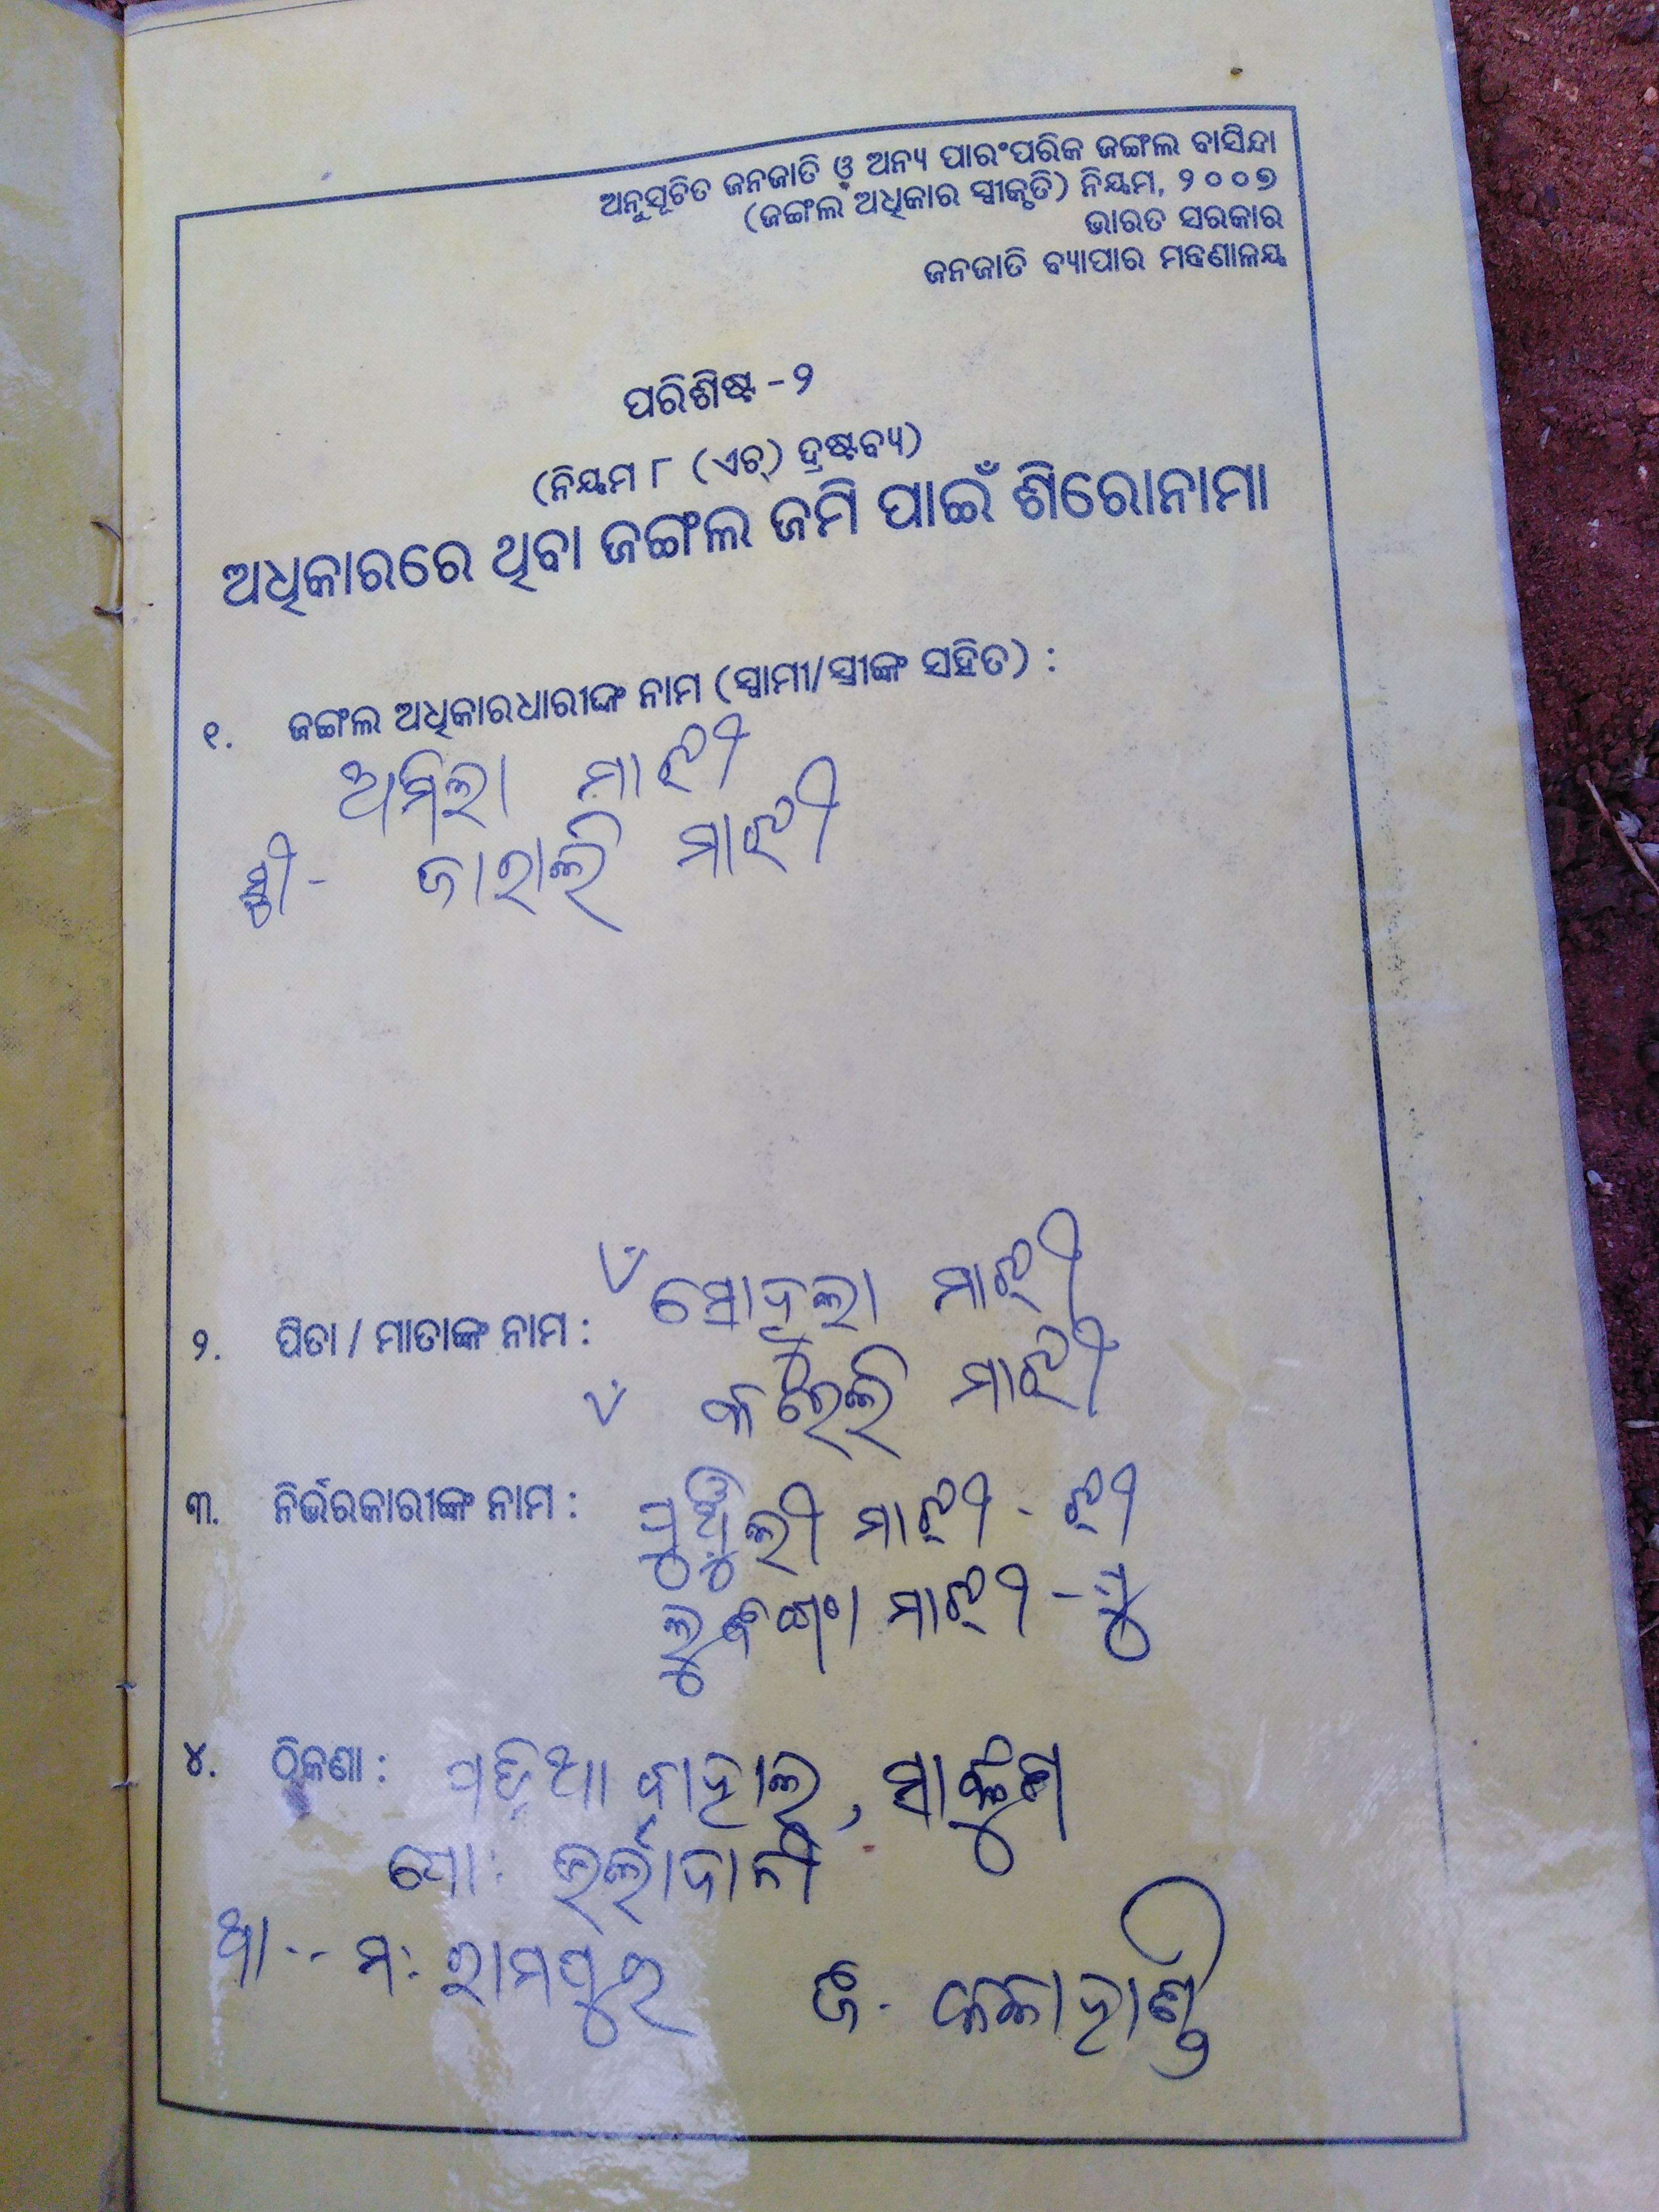 ଅନୁସୂଚିତ ଜନଜାତି ଓ ଅନ୍ୟ ପାରଂପରିକ ଜଙ୍ଗଲ ବାସିନ୍ଦା
(ଜଙ୍ଗଲ ଅଧିକାର ସ୍ୱୀକୃତି) ନିୟମ, ୨୦୦୭
ଭାରତ ସରକାର
ଜନଜାତି ବ୍ୟାପାର ମନ୍ତ୍ରଣାଳୟ
ପରିଶିଷ୍ଟ -୨
(ନିୟମ ୮ (ଏଚ୍) ଦ୍ରଷ୍ଟବ୍ୟ)
ଅଧିକାରରେ ଥିବା ଜଙ୍ଗଲ ଜମି ପାଇଁ ଶିରୋନାମା
୧. ଜଙ୍ଗଲ ଅଧିକାରଧାରୀଙ୍କ ନାମ (ସ୍ୱାମୀ/ସ୍ତ୍ରୀଙ୍କ ସହିତ) :
ଅମିଲା ମାଝୀ
ସ୍ତ୍ରୀ - ଜାରାଲି ମାଝୀ
ମାଝୀ
୨. ପିତା / ମାତାଙ୍କ ନାମ :
ମାଝୀ
୩. ନିର୍ଭରକାରୀଙ୍କ ନାମ : ମାଝୀ - ଝୀ
ମାଝୀ - ପୁ
୪. ଠିକଣା : ପଡ଼ିଆ ବାହାଲ,
ପୋ: ଉର୍ଲାଦାନୀ
ଥା - ମ: ରାମପୁର ଜି - କଳାହାଣ୍ଡି